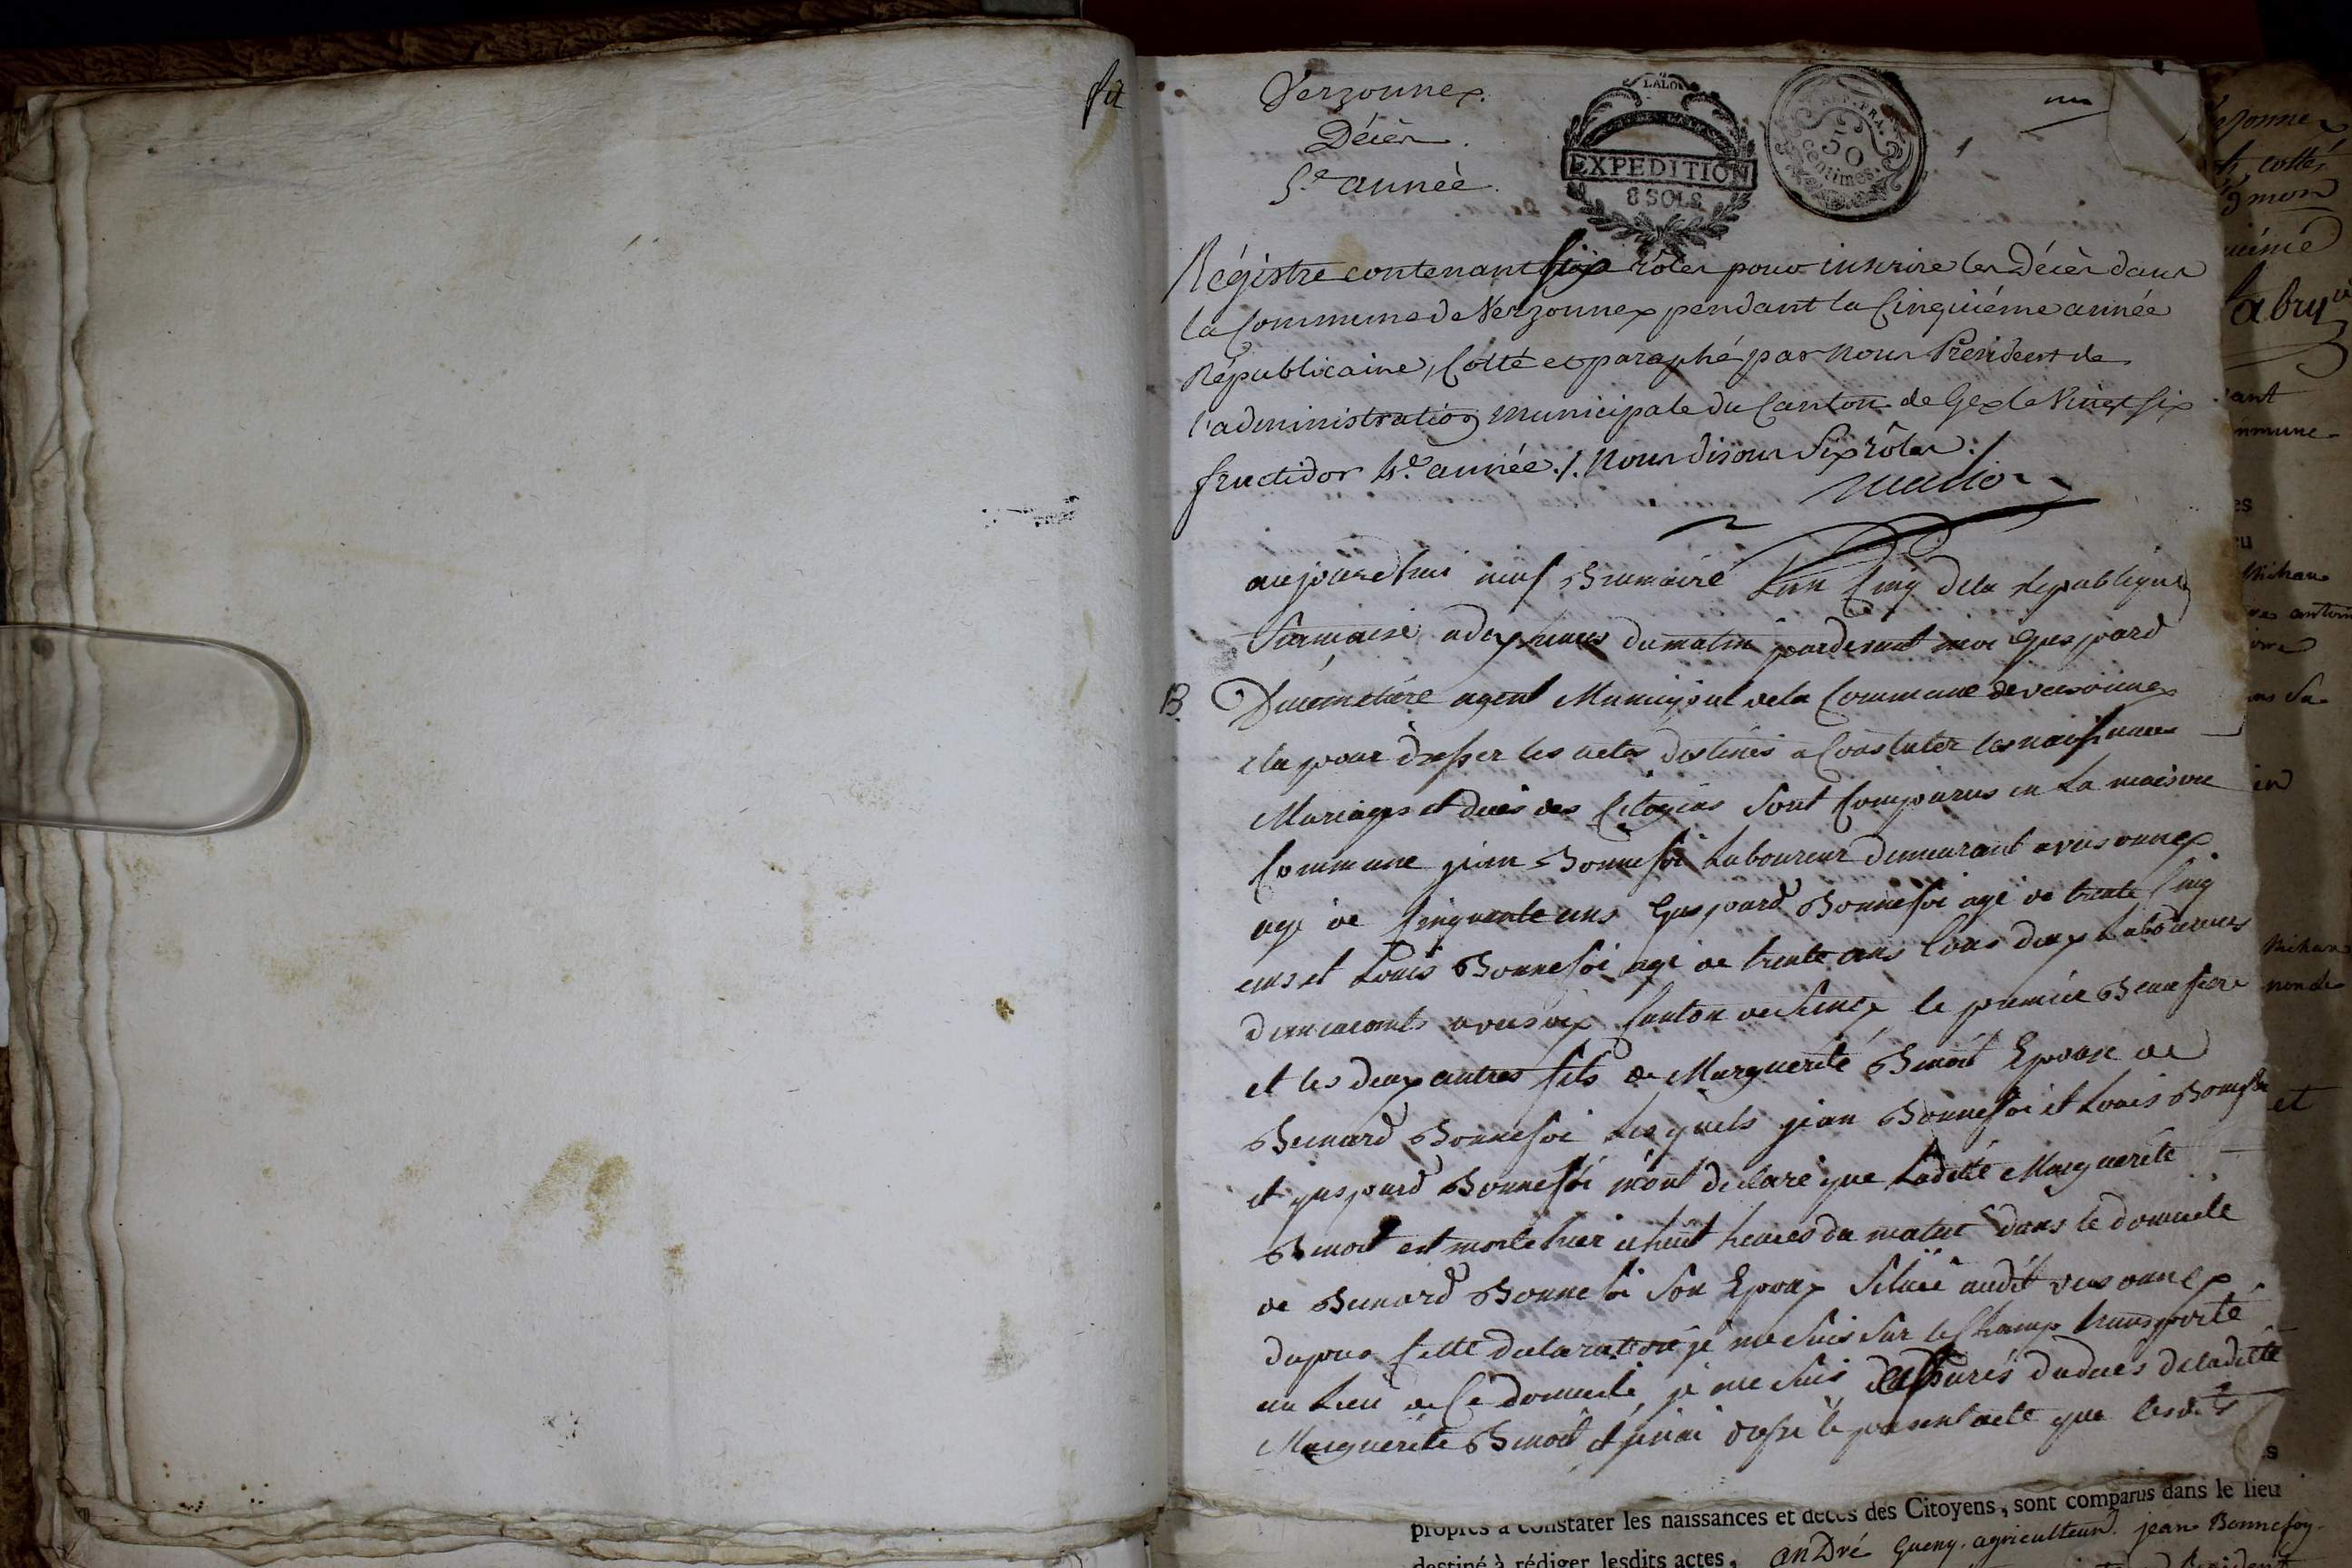 Verzonnex.
Décès.
5.e année.
LALO
EXPEDITION
8 SOLS
REP. FRA.
50
centimes.
1
Régistre contenant six rôles pour inscrire les Décès dans
la Commune de Verzonnex pendant la Cinquiéme année
Républicaine, Cotté et paraphé par nous Président de
l'administration municipale du Canton de Gex le Vingt six
fructidor 4.e année ./. Nous disons Six rôles ./.
aujourdhui neuf Brumaire Lan Cinq dela Republique
francaise a dix heures du matin pardevant moi Gaspard
B. Ducimetiére agent Municipal dela Commune de versonnex
elu pour dresser les actes destinés a Constater les naissances
Mariages et deces des Citoyens Sont Comparus en La maison
Commune jean Bonnefoi Laboureur demeurant a versonnex
agé de Cinquante ans Gaspard Bonnefoi agé de trente Cinq
ans et Louis Bonnefoi agé de trente ans tous deux Laboureurs
a Canton de le premiér Beaufrere
et les deux autres fils de Marguerite Benoit Epouse de
Bernard Bonnefoi Lesquels jean Bonnefoi et Louis Bonnefoi
et gaspard Bonnefoi m'ont declaré que Ladite Marguerite
Benoit est morte hier a huit heures du matin dans le domicile
de Bernard Bonnefoi Son Epoux Situé audit versonnex
dapres Cette declaration je me Suis Sur le Champ transporté
au Lieu de Ce domicile, je me Suis assurés du deces deladitte
Marguerite Benoit et j'en ai dressé le present acte que lesdits
cottés
abry
ant
mmune
Michau
antoin
Michau
nom de
et
propres à constater les naissances et décès des Citoyens, sont comparus dans le lieu
destiné à rédiger lesdits actes, anDré Gueny. agriculteur. jean Bonnefoy.